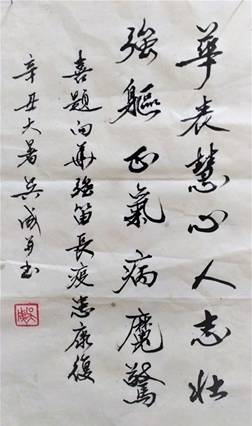 華表慧心人志壯
強軀正氣病魔驚
喜題向華強笛長疫恙康復
辛丑大暑吳成